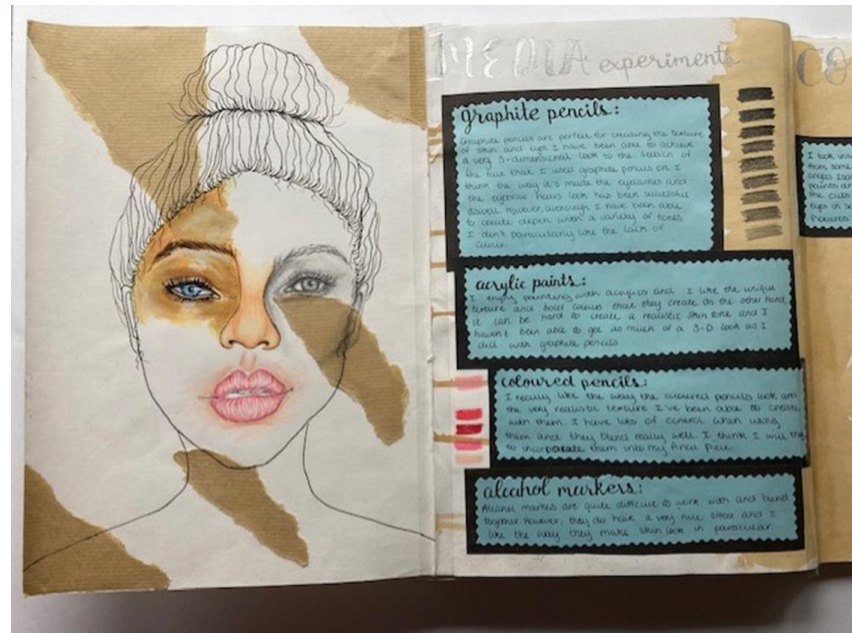 MEDIA experiments
graphite pencils:
Graphite pencils are perfect for creating the texture
of skin and eyes I have been able to achieve
a very 3-dimensional look to the section of
the face that I used graphite pencils on. I
think the way it's made the eyelashes and
the eyebrow hairs look has been successful
aswell. However, although I have been able
to create depth with a variety of tones
I don't particularly like the lack of
colour.
acrylic paints:
I enjoy painting with acrylics and I like the unique
texture and bold colours that they create on the other hand,
it can be hard to create a realistic skin tone and I
haven't been able to get as much of a 3-D look as I
did with graphite pencils.
coloured pencils:
I really like the way the coloured pencils look and
the very realistic texture I've been able to create
with them. I have lots of control when using
them and they blend really well. I think I will try
to incorporate them into my final piece.
alcohol markers:
Alcohol markers are quite difficult to work with and blend
together. However, they do have a very nice effect and I
like the way they make skin look in particular
CO
I took
from some
angles
paints an
she cuts
eyes in
pictures.